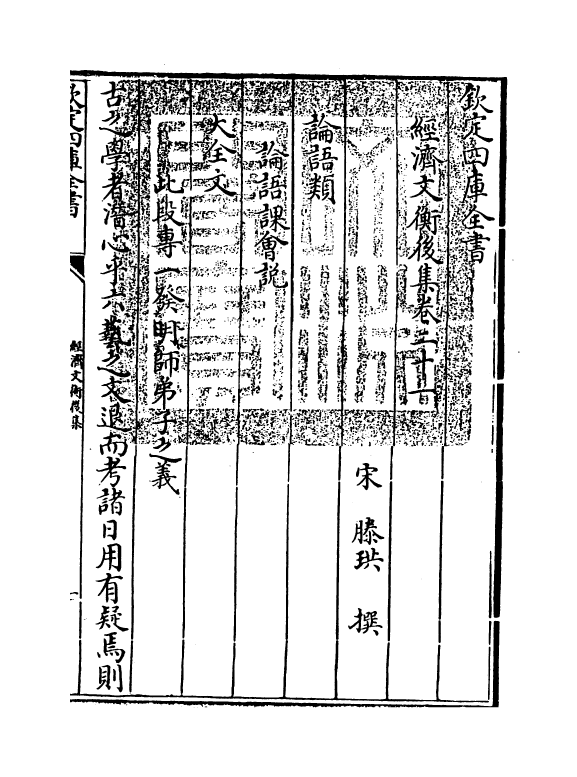 欽定四庫全書
經濟文衡後集卷二十一
宋 滕珙 撰
論語類
論語課會説
大全文
此段專一發明師弟子之義
古之學者潛心乎六藝之文退而考諸日用有疑焉則
欽定四庫全書
經濟文衡後集
一